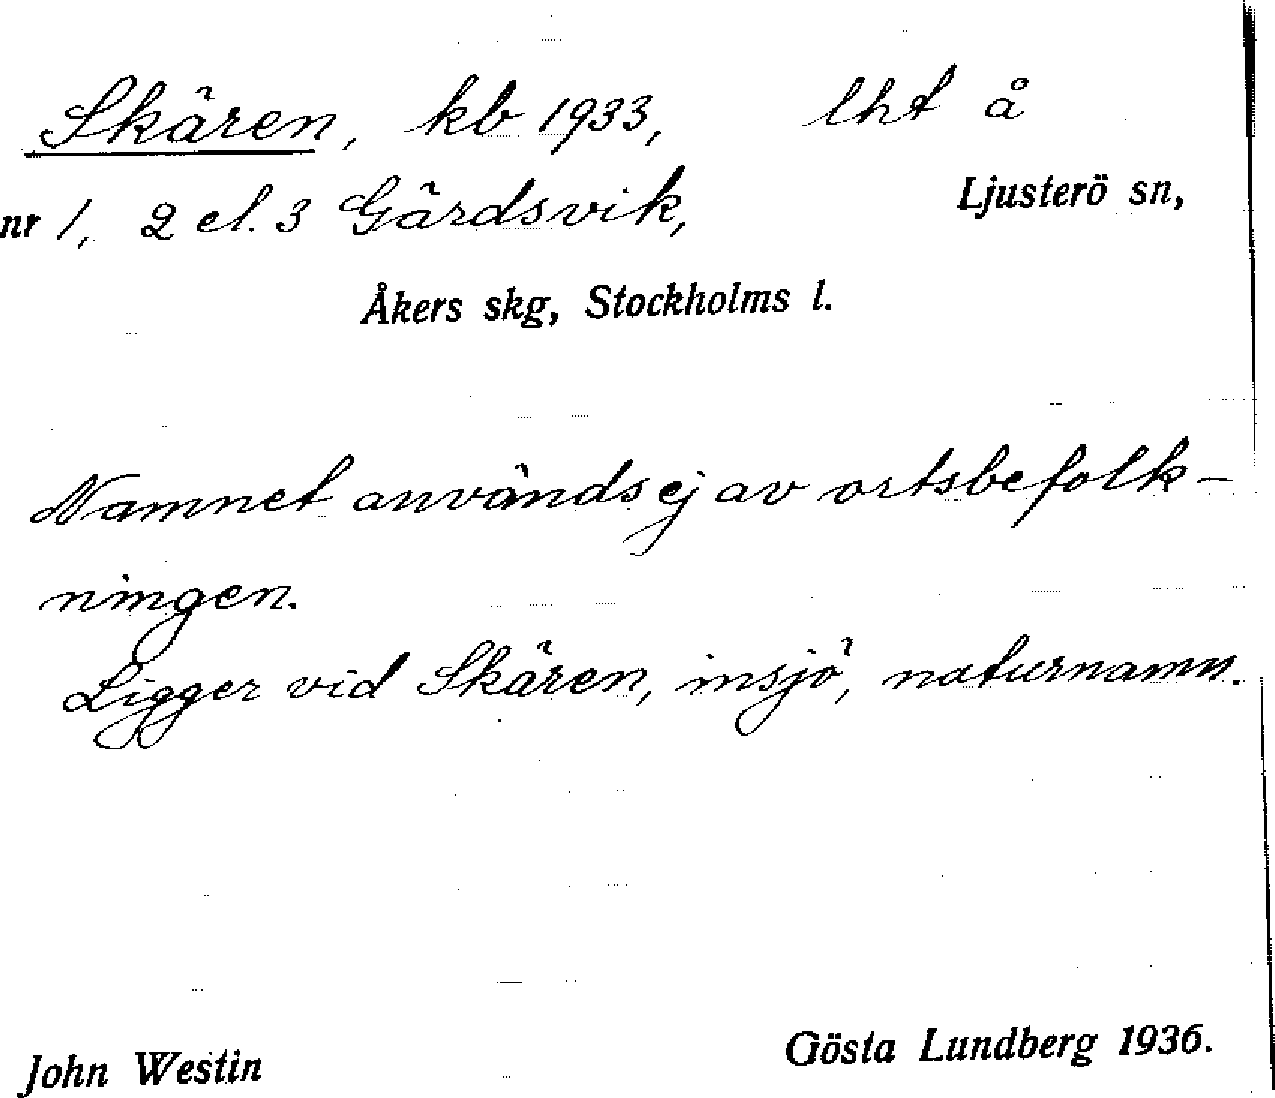 Skären, kb 1933, lht å
nr 1, 2 el. 3 Gärdsvik, Ljusterö sn,
Åkers skg, Stockholms l.
Namnet användes ej av ortsbefolk-
ningen.
Ligger vid Skären, insjö, naturnamn.
John Westin Gösta Lundberg 1936.